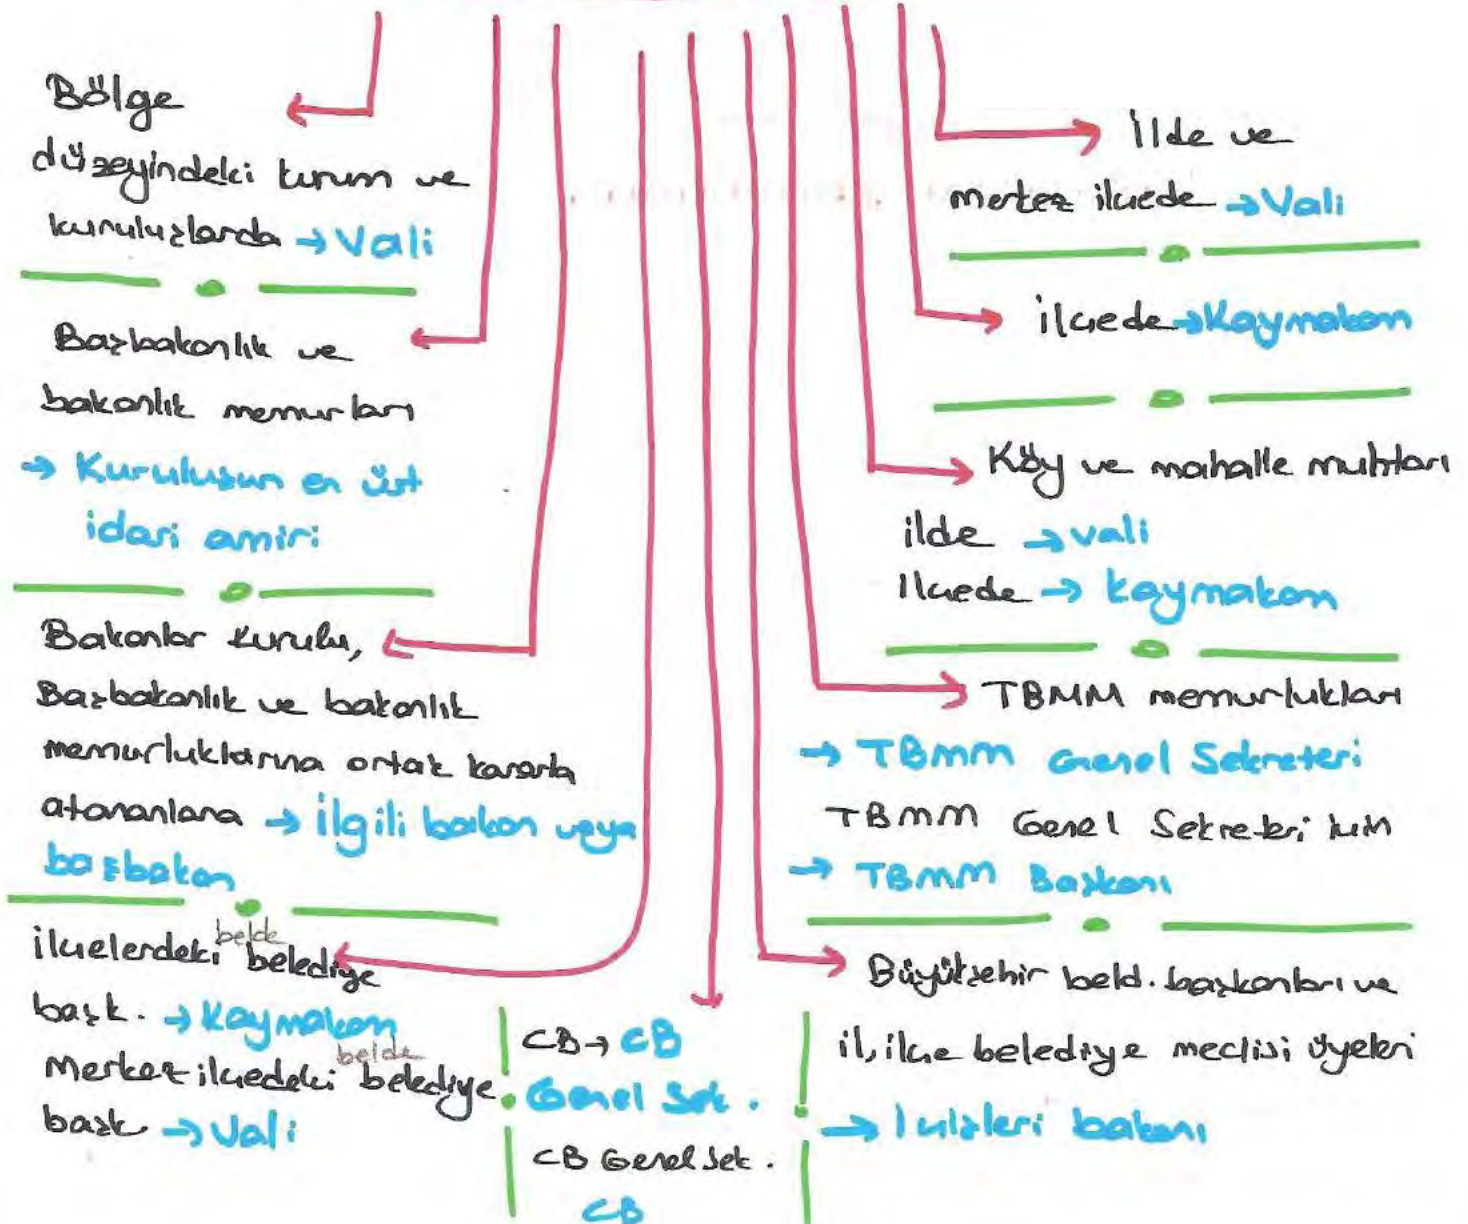 Bölge
düzeyindeki kurum ve
kuruluşlarda → Vali
Başbakanlık ve
bakanlık memurları
→ Kuruluşun en üst
idari amiri
Bakanlar kurulu,
Başbakanlık ve bakanlık
memurluklarına ortak kararla
atananlara → ilgili bakan veya
başbakan
ilçelerdeki belde belediye
başk. → Kaymakam
Merkez ilçedeki belde belediye
başk → Vali
CB → CB
Genel Sek.
CB Genel Sek.
CB
İlde ve
merkez ilçede → Vali
ilçede → Kaymakam
Köy ve mahalle muhtarı
ilde → vali
İlçede → kaymakam
TBMM memurlukları
→ TBMM Genel Sekreteri
TBMM Genel Sekreteri için
→ TBMM Başkanı
Büyükşehir beld. başkanları ve
il, ilçe belediye meclisi üyeleri
→ İçişleri bakanı